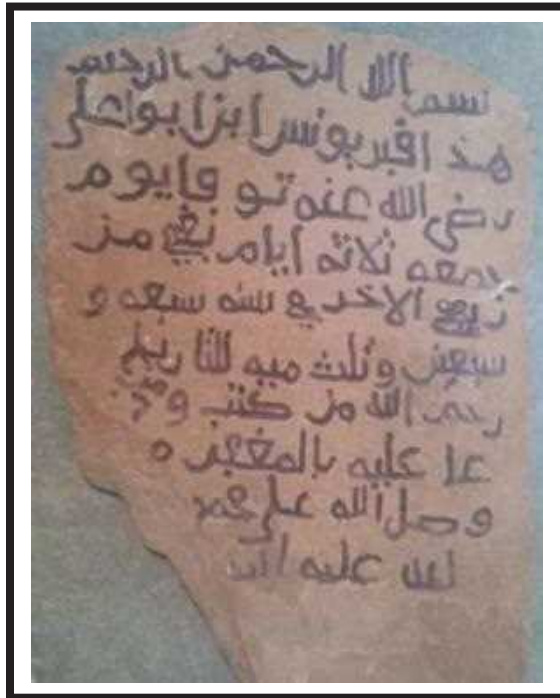 بسم اللا الرحمن الرحيم
هذا قبر يونس ابن ابو علي
رضي الله عنه توفا يوم
جمعه ثلاثه ايام بقي من
ربيع الاخر في سنه سبعه و
سبعين وثلث ميه للتاريخ
رحم الله من كتب و
عا عليه بالمغفره
وصل الله علي محمد
عليه